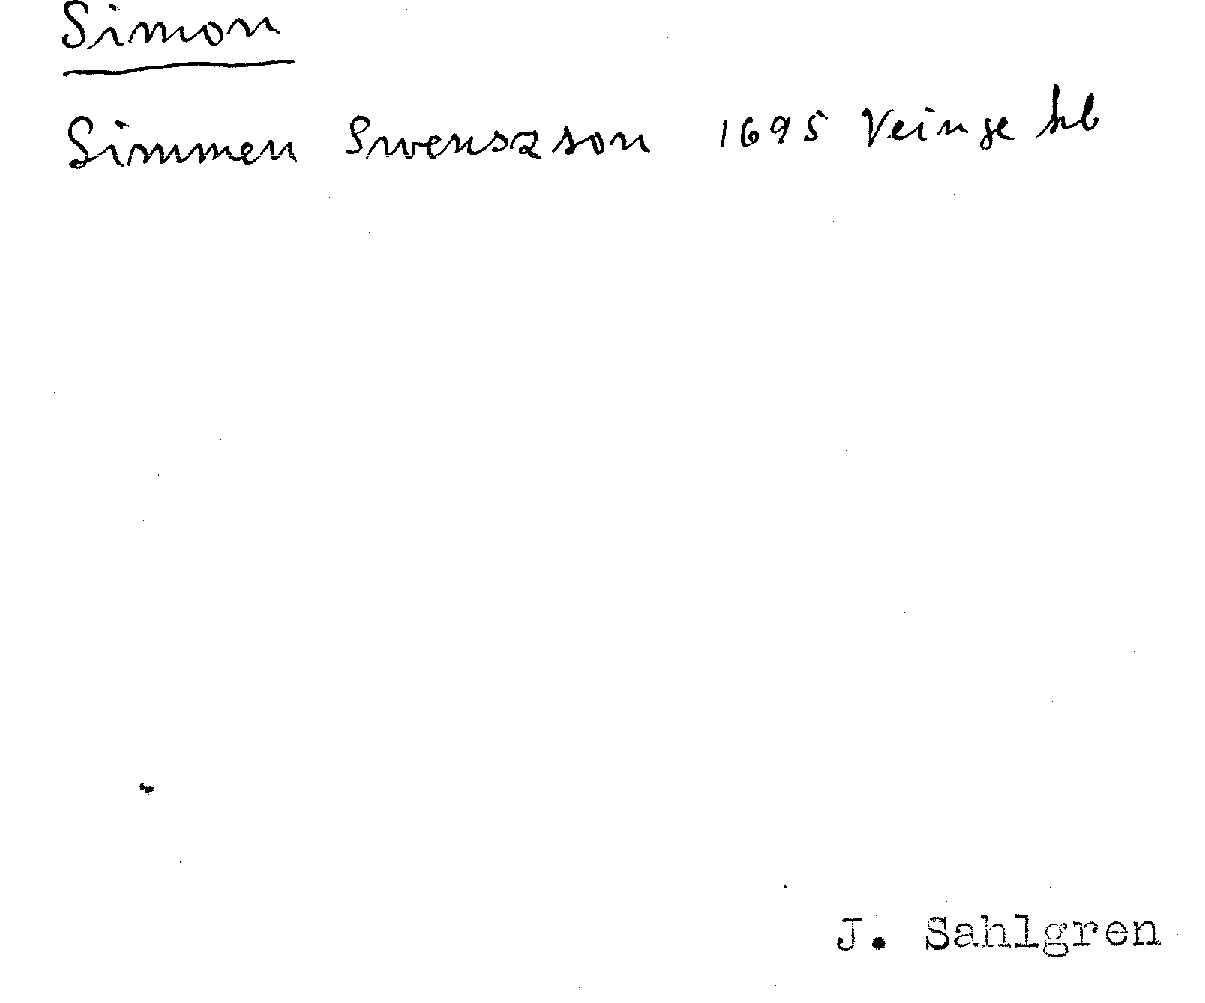 Simon
Simmen Swenszson 1695 Veinge hb
J. Sahlgren